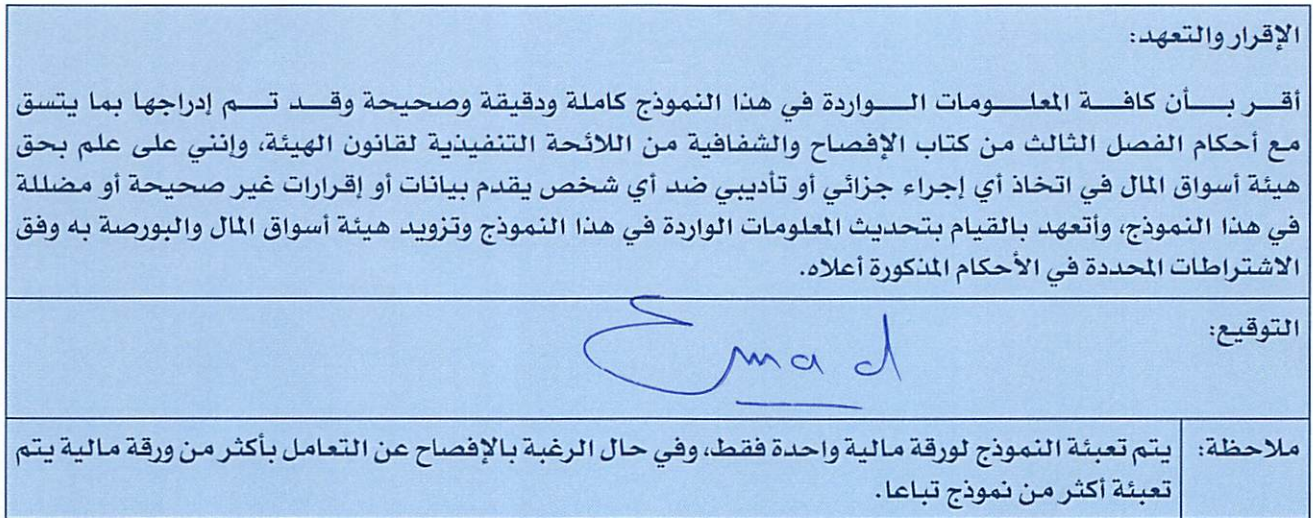 الإقرار والتعهد:
أقر بأن كافة المعلومات الواردة في هذا النموذج كاملة ودقيقة وصحيحة وقد تم إدراجها بما يتسق
مع أحكام الفصل الثالث من كتاب الإفصاح والشفافية من اللائحة التنفيذية لقانون الهيئة، وإنني على علم بحق
هيئة أسواق المال في اتخاذ أي إجراء جزائي أو تأديبي ضد أي شخص يقدم بيانات أو إقرارات غير صحيحة أو مضللة
في هذا النموذج، وأتعهد بالقيام بتحديث المعلومات الواردة في هذا النموذج وتزويد هيئة أسواق المال والبورصة به وفق
الاشتراطات المحددة في الأحكام المذكورة أعلاه.
التوقيع:
Emad
ملاحظة: يتم تعبئة النموذج لورقة مالية واحدة فقط، وفي حال الرغبة بالإفصاح عن التعامل بأكثر من ورقة مالية يتم
تعبئة أكثر من نموذج تباعا.